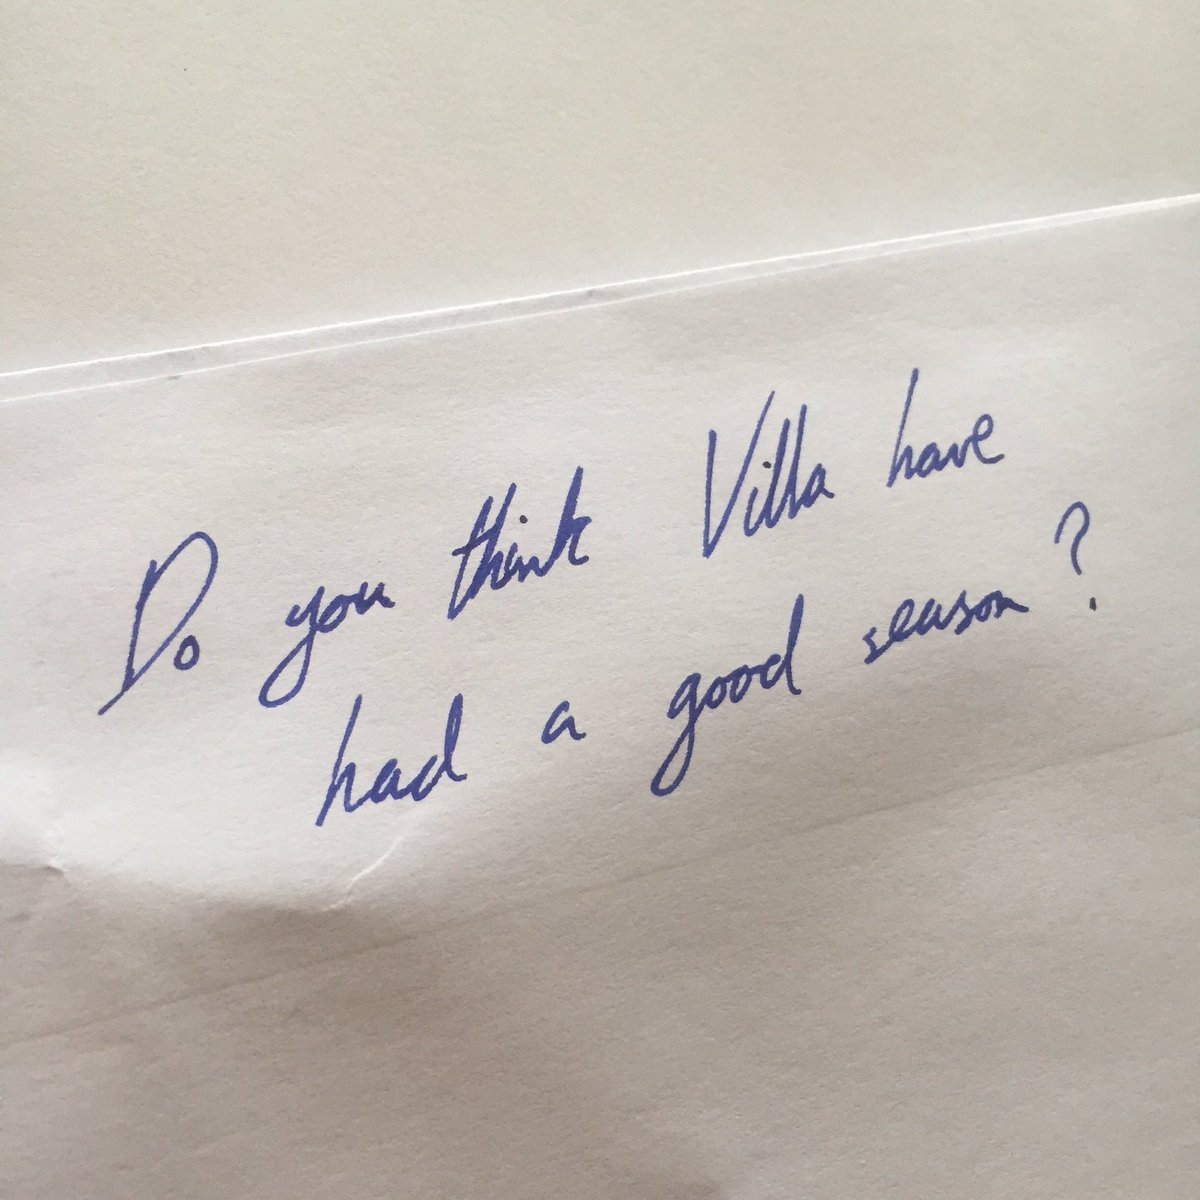 Do you think Villa have
had a good season?